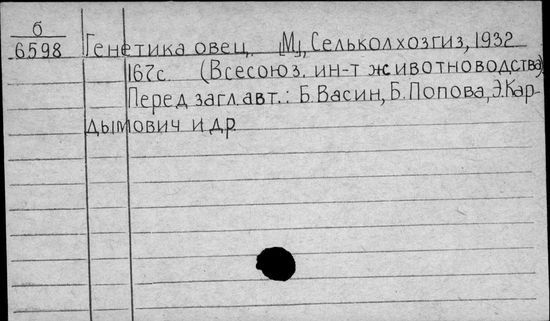 б
6598 Генетика овец. [М], Сельколхозгиз, 1932
167с. (Всесоюз. ин-т животноводства).
Перед загл. авт.: Б. Васин, Б. Попова, Э. Кар-
дымович и др.